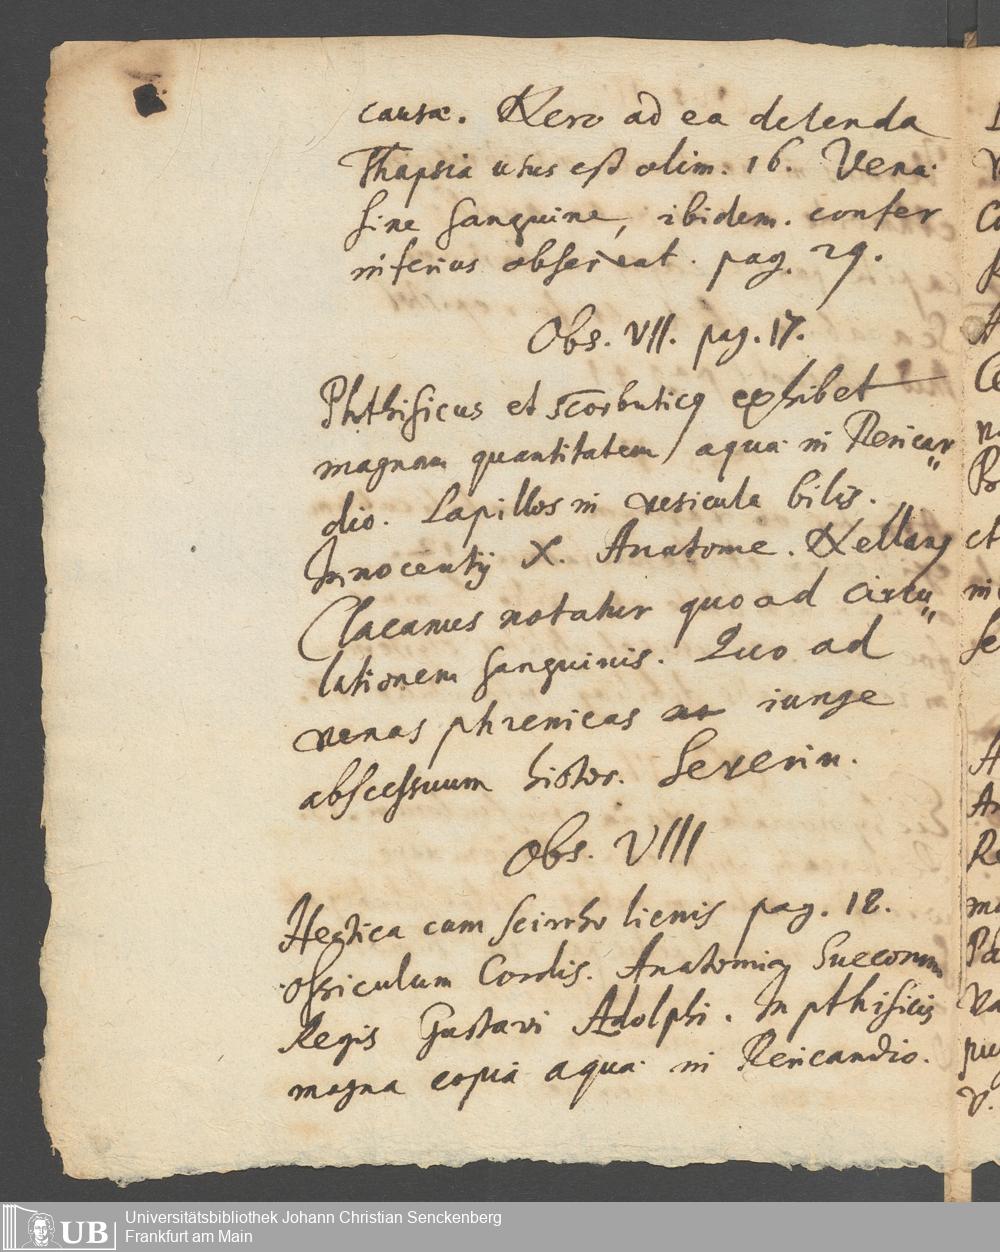 causæ. Nero ad ea delenda
Thapsia usus est olim. 16. Vena
sine sanguine, ibidem. confer
inferius observat. pag. 29.
Obs. VII. pag. 17.
Phthisicus et scorbuticq exhibet
magnam quantitatem aquæ in Pericar„
dio. Lapillos in vesicula bilis.
Innocentij X. Anatome.
notatur quo ad circu„
lationem sanguinis. Quo ad
venas phrenicas iunge
abscessuum histor. Severin.
Obs. VIII
Hectica cum scirrho lienis pag. 18.
ossiculum Cordis. Suecorum
Regis Gustavi Adolphi. In pthisicis
magna copia aquæ in Pericardio.
Universitätsbibliothek Johann Christian Senckenberg
Frankfurt am Main
UB